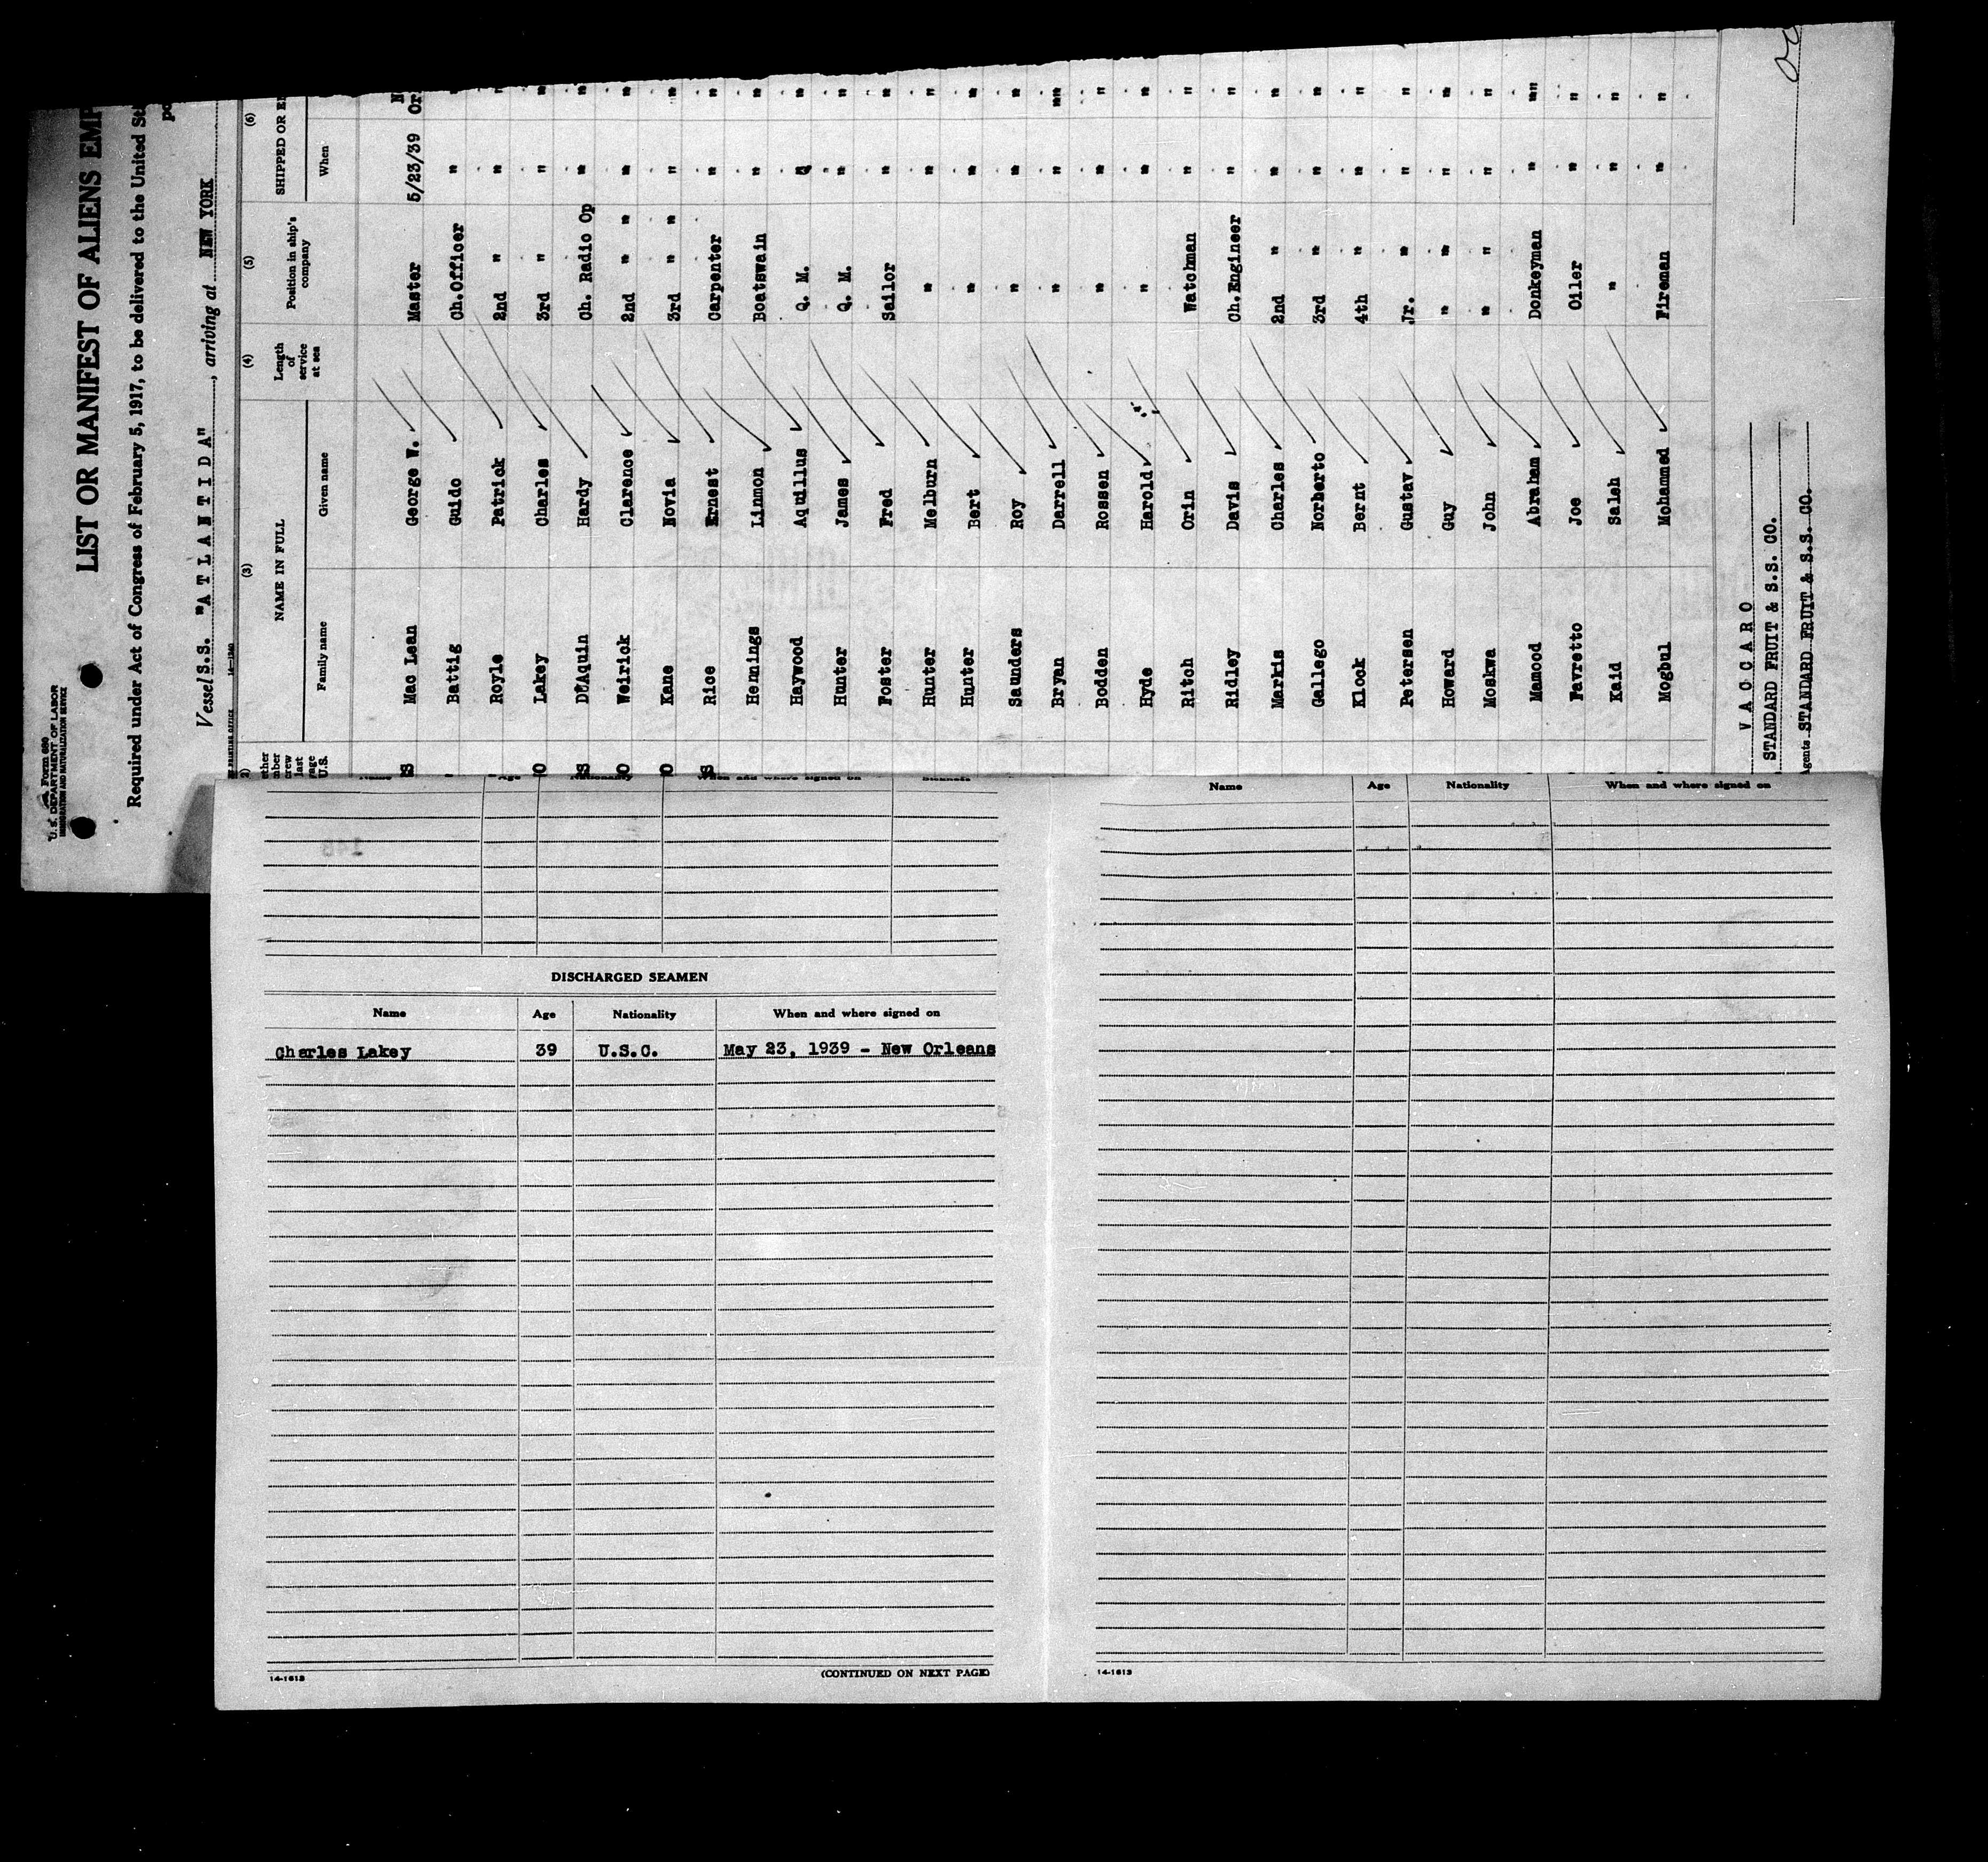 Form 680
U. S. DEPARTMENT OF LABOR
IMMIGRATION AND NATURALIZATION SERVICE
LIST OR MANIFEST OF ALIENS EMP
Required under Act of Congress of February 5, 1917, to be delivered to the United St
Vessel S.S. "A T L A N T I D A", arriving at NEW YORK
(3) (4) (5) (6)
NAME IN FULL Length of service at sea Position in ship's company SHIPPED OR E
Family name Given name When
Mac Lean George W. Master 5/23/39
Battig Guido Ch.Officer " "
Royle Patrick 2nd " " "
Lakey Charles 3rd " " "
D'Aquin Hardy Ch. Radio Op " "
Weirick Clarence 2nd " " " "
Kane Novia 3rd " " " "
Rice Ernest Carpenter " "
Hemings Linmon Boatswain " "
Haywood Aquillus Q. M. " "
Hunter James Q. M. " "
Foster Fred Sailor " "
Hunter Melburn " " "
Hunter Bert " " "
Saunders Roy " " "
Bryan Darrell " " "
Bodden Rossen " " "
Hyde Harold " " "
Ritch Orin Watchman " "
Ridley Davis Ch.Engineer " "
Markis Charles 2nd " " "
Gallego Norberto 3rd " " "
Klock Bernt 4th " " "
Petersen Gustav Jr. " " "
Howard Guy " " " "
Moskwa John " " " "
Mamood Abraham Donkeyman " "
Favretto Joe Oiler " "
Kaid Saleh " " "
Mogbul Mohammed Fireman " "
V A C C A R O
STANDARD FRUIT & S.S. CO.
Agents STANDARD FRUIT & S.S. CO.
Name Age Nationality When and where signed on
DISCHARGED SEAMEN
Name Age Nationality When and where signed on
Charles Lakey 39 U.S.C. May 23, 1939 - New Orleans
14-1613 (CONTINUED ON NEXT PAGE)
14-1613